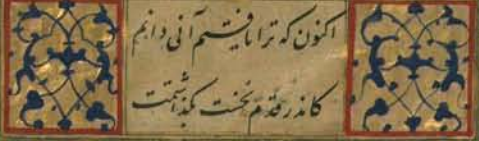 اکنون که ترا یافتم آنی دانم
کاندر قدم نخست بگذاشتمت